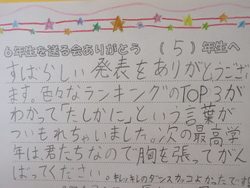 6年生を送る会ありがとう （５）年生へ
すばらしい発表をありがとうござい
ます。色々なランキングのTOP3が
わかって「たしかに」という言葉が
ついもれちゃいました。次の最高学
年は、君たちなので胸を張ってがん
ばってください。キレッキレのダンスカッコよかったです